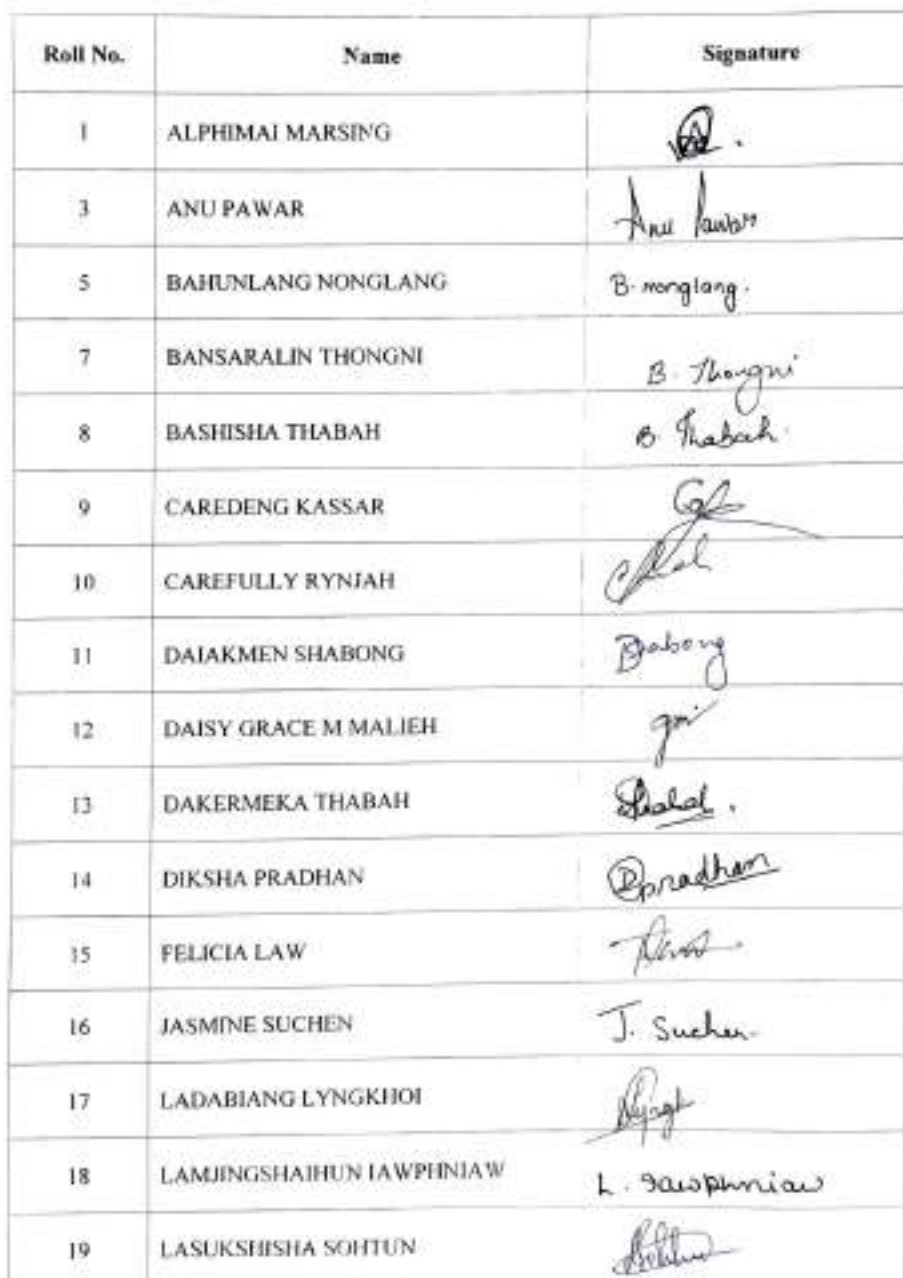 Roll No. Name Signature
1 ALPHIMAI MARSING
3 ANU PAWAR Anu Pawar
5 BAHUNLANG NONGLANG B. nonglang.
7 BANSARALIN THONGNI B. Thongni
8 BASHISHA THABAH B. Thabah.
9 CAREDENG KASSAR
10 CAREFULLY RYNJAH
11 DAIAKMEN SHABONG Dshabong
12 DAISY GRACE M MALIEH
13 DAKERMEKA THABAH
14 DIKSHA PRADHAN Dpradhan
15 FELICIA LAW
16 JASMINE SUCHEN J. Suchen
17 LADABIANG LYNGKHOI
18 LAMJINGSHAIHUN IAWPHNIAW L. Iawphniaw
19 LASUKSHISHA SOHTUN